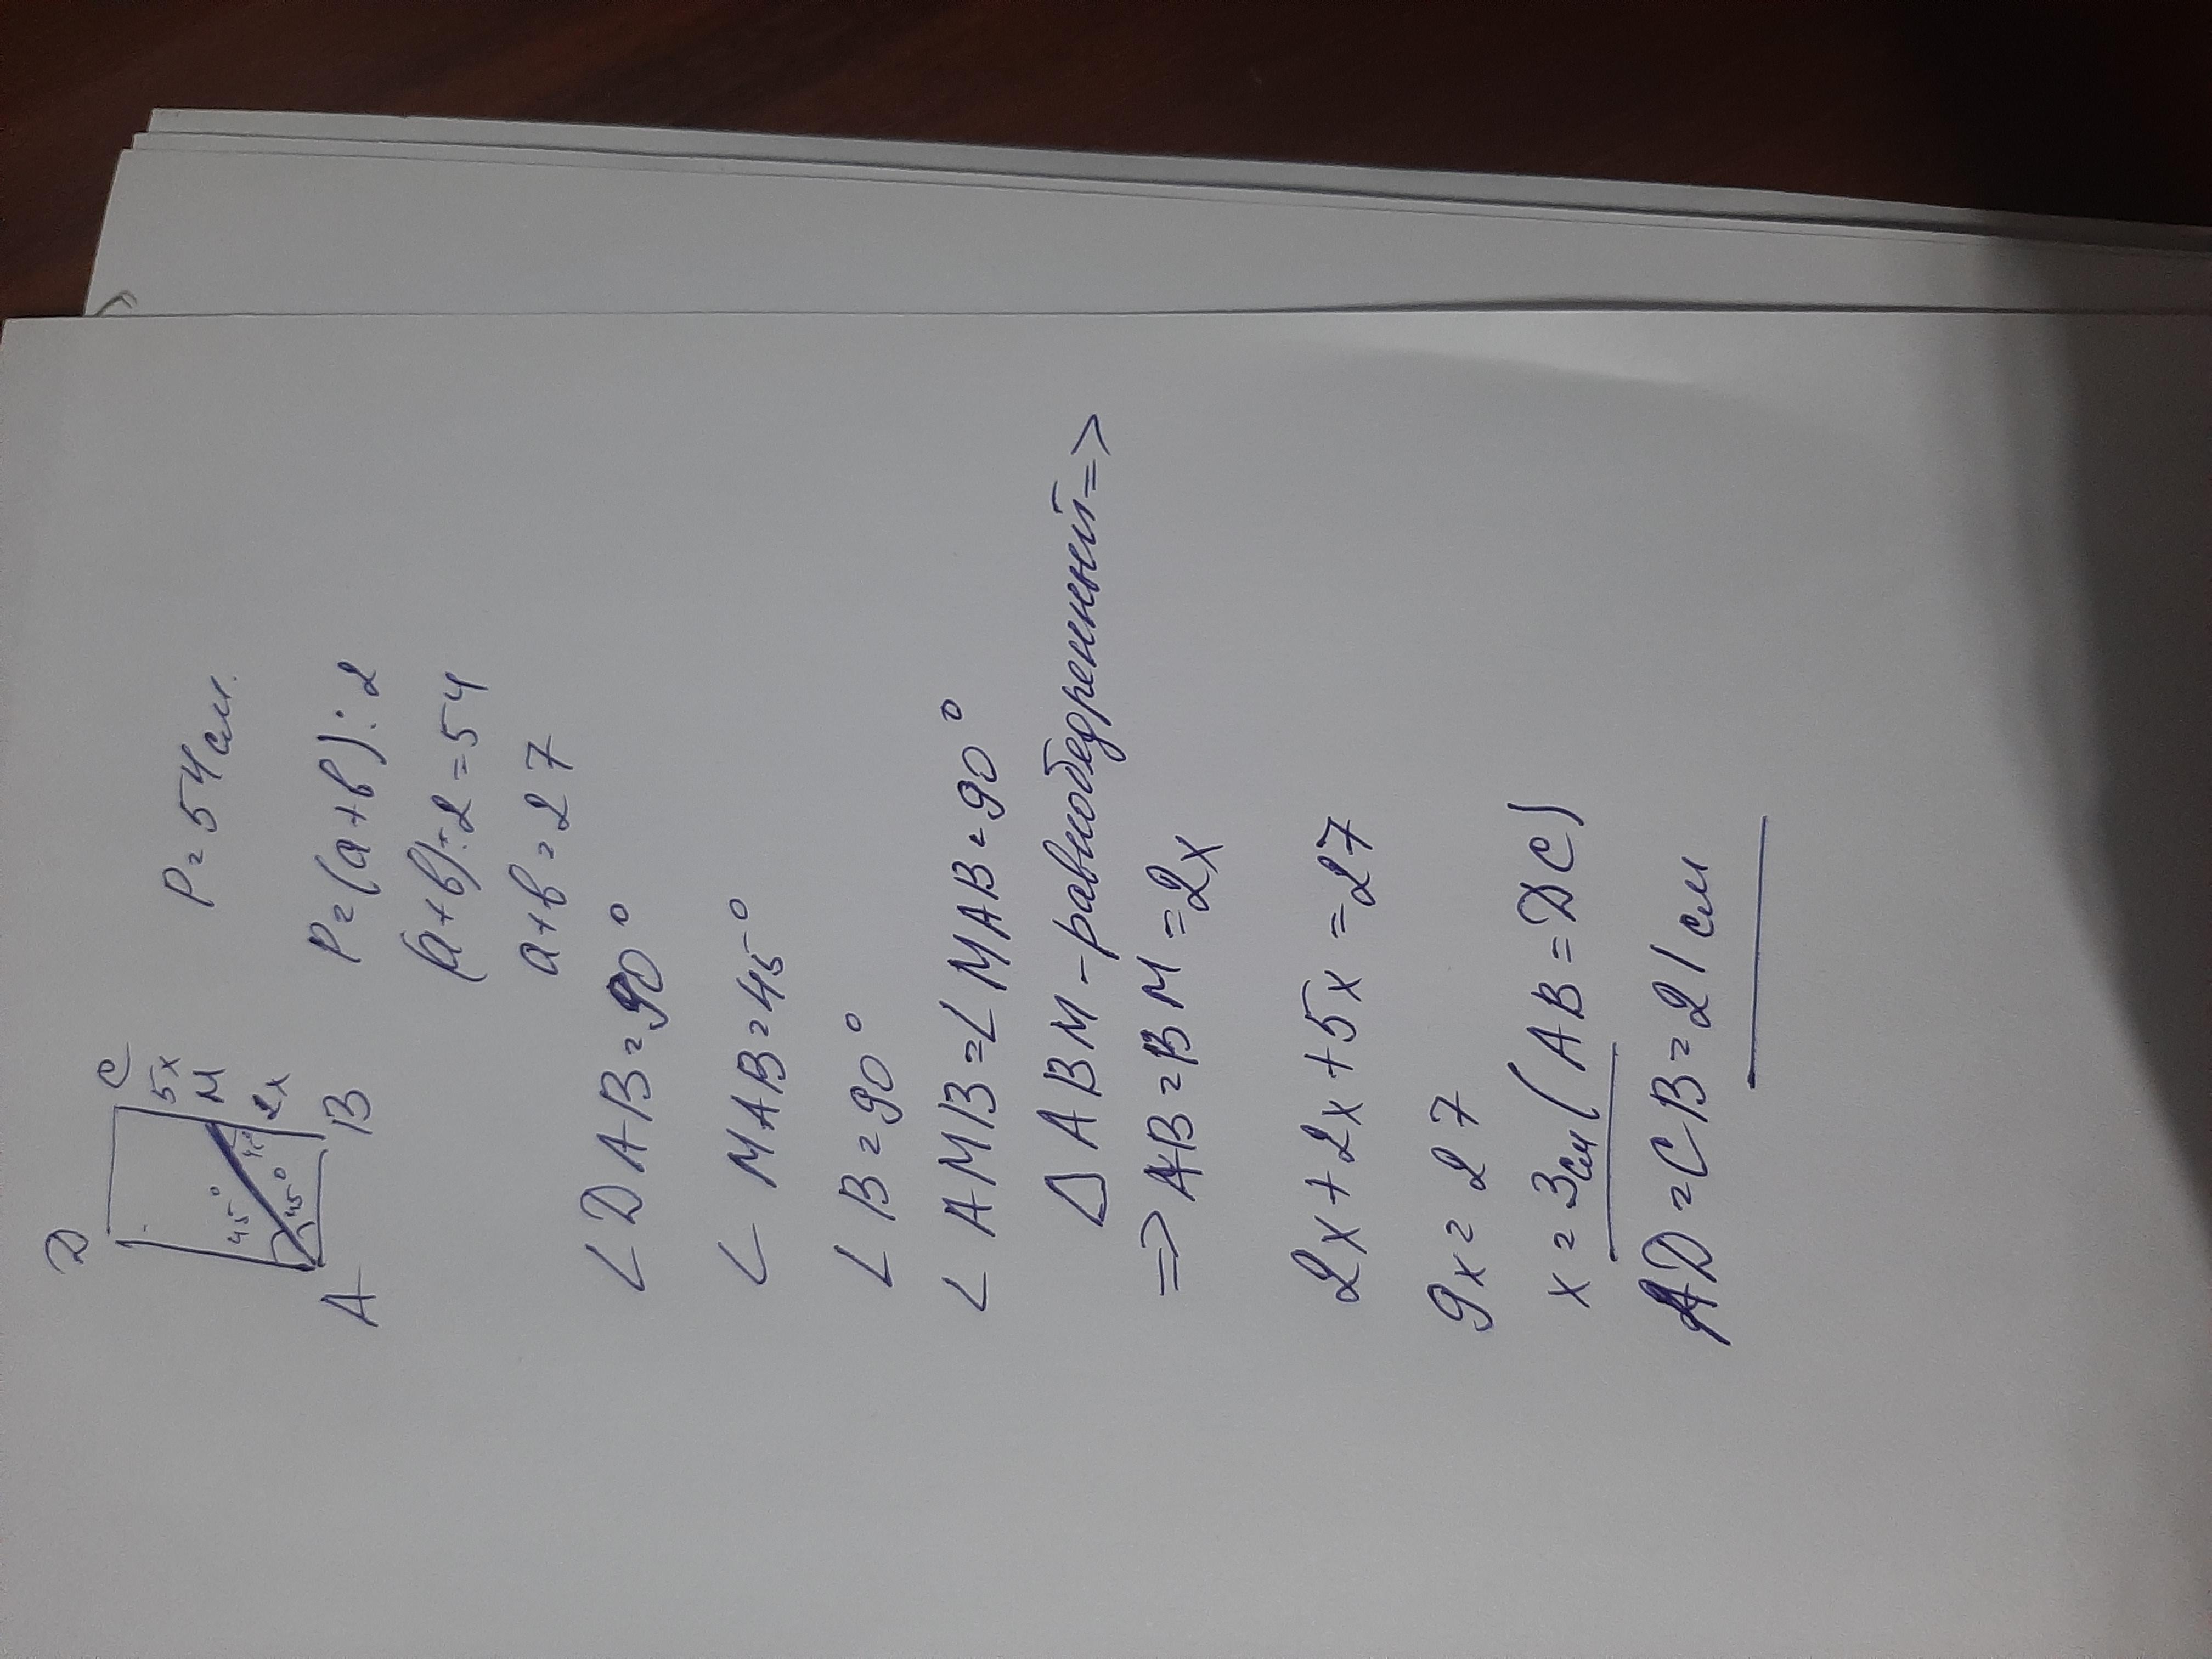 D C
5x
M
45°
45°
2x
A B
P = 54 см.
P = (a+b):2
(a+b):2 = 54
a+b = 27
∠DAB = 90°
∠MAB = 45°
∠B = 90°
∠AMB = ∠MAB = 90°
△ABM - равнобедренный =>
=> AB = BM = 2x
2x + 2x + 5x = 27
9x = 27
x = 3см (AB = DC)
AD = CB = 21 см